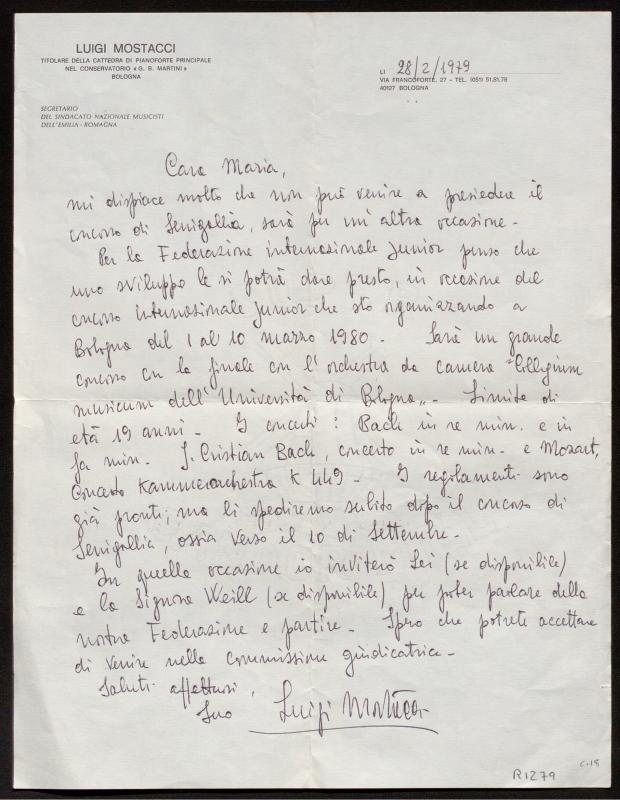 LUIGI MOSTACCI
TITOLARE DELLA CATTEDRA DI PIANOFORTE PRINCIPALE
NEL CONSERVATORIO «G. B. MARTINI»
BOLOGNA
LI 28/2/1979
VIA FRANCOFORTE, 27 - TEL. (051) 51.81.78
40127 BOLOGNA
SEGRETARIO
DEL SINDACATO NAZIONALE MUSICISTI
DELL'EMILIA - ROMAGNA
Cara Maria,
mi dispiace molto che non può venire a presiedere il
concorso di Senigallia, sarà per un'altra occasione.
Per la Federazione internazionale Junior penso che
uno sviluppo le si potrà dare presto, in occasione del
concorso internazionale Junior che sto organizzando a
Bologna del 1 al 10 marzo 1980. Sarà un grande
concorso con la finale con l'orchestra da camera "Collegium
musicum dell'Università di Bologna". Limite di
età 19 anni. I concerti: Bach in re min. e in
fa min. J. Cristian Bach, concerto in re min. e Mozart,
Concerto Kammerorchestra K 449. I regolamenti sono
già pronti, ma li spediremo subito dopo il concorso di
Senigallia, ossia verso il 10 di Settembre.
In quella occasione io inviterò Lei (se disponibile)
e la Signora Weill (se disponibile) per poter parlare della
nostra Federazione e partire. Spero che potrete accettare
di venire nella Commissione giudicatrice.
Saluti affettuosi,
Suo Luigi Mostacci
C.18
R1279